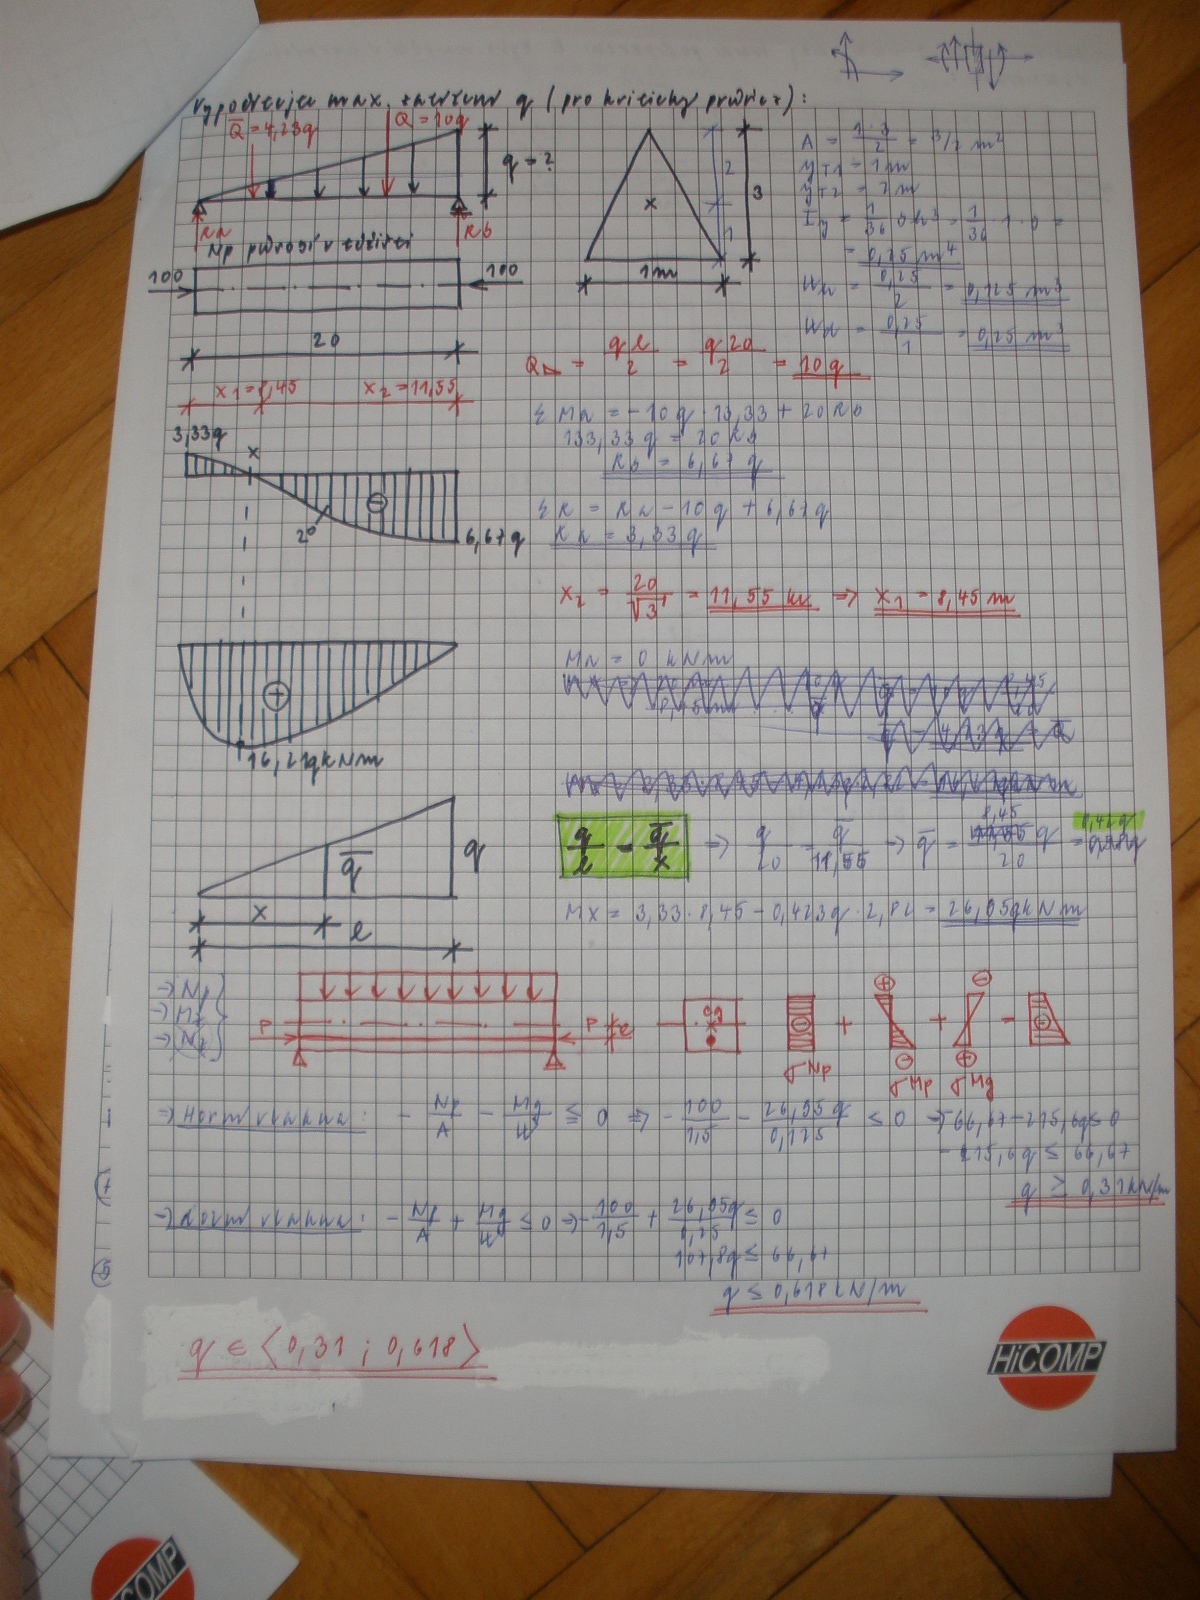 vypočítejte max. zatížení q (pro kritický průřez):
Q̅ = 4,23q
Q = 10q
q = ?
Ra
Rb
Np působí v těžišti
100
100
20
x
2
1
3
1m
A = 1·3/2 = 3/2 m²
yT1 = 1m
yT2 = 2m
Iy = 1/36 bh³ = 1/36 · 1 ·
= 0,75 m⁴
= 0,25/2 = 0,125 m³
= 0,25/1 = 0,25 m³
x1 = 8,45
x2 = 11,55
Q△ = qℓ/2 = q20/2 = 10q
ΣMa = -10q · 13,33 + 20Rb
133,33q = 20Rb
Rb = 6,67q
ΣR = Ra - 10q + 6,67q
Ra = 3,33q
3,33q
x
2°
⊖
6,67q
x2 = 20/√3 = 11,55 m ⇒ x1 = 8,45 m
Ma = 0 kNm
⊕
16,21qkNm
q/ℓ = q̅/x ⇒ q/20 = q̅/11,55 → q̅ = 8,45q/20 = 0,42q
q̅
q
x
ℓ
Mx = 3,33 · 8,45 - 0,423q · 2,82 = 26,95qkNm
→ Np
→ Mq
P
P
e
cg
⊖
+
⊕
⊖
+
⊖
⊕
=
σNp
σMp
σMq
→ Horní vlákna: - Np/A - Mq/W ≤ 0 ⇒ - 100/1,5 - 26,95q/0,125 ≤ 0 ⇒ -66,67 - 215,6q ≤ 0
- 215,6q ≤ 66,67
q ≥ 0,31kN/m
→ Dolní vlákna: - Np/A + Mq/W ≤ 0 ⇒ - 100/1,5 + 26,95q/0,25 ≤ 0
107,8q ≤ 66,67
q ≤ 0,618kN/m
q ∈ ⟨0,31 ; 0,618⟩
HiCOMP
HiCOMP